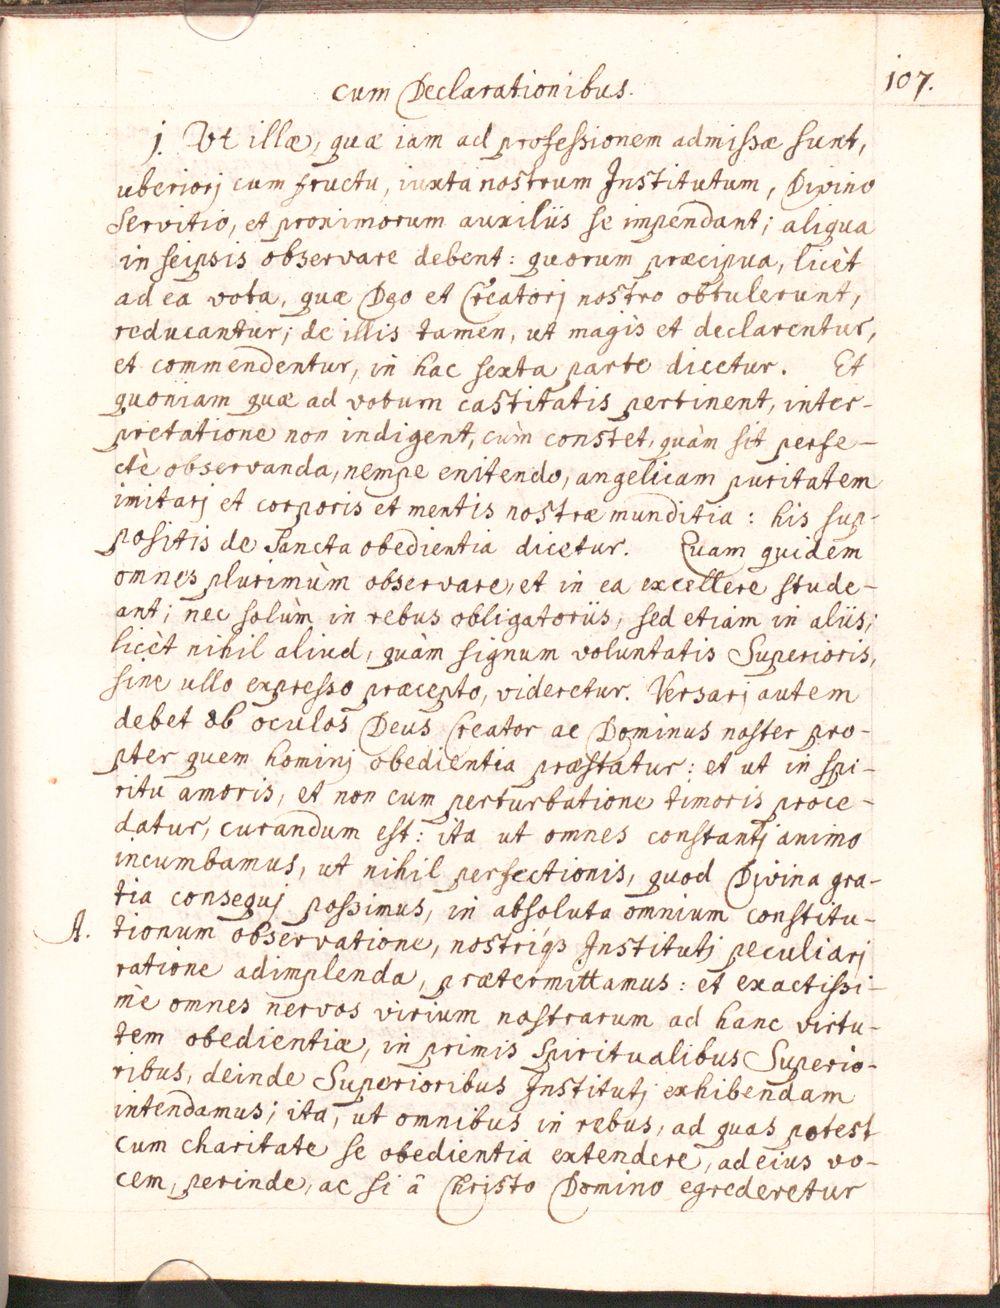 cum Declarationibus.
107.
j. Vt illæ, quæ iam ad professionem admissæ sunt,
uberiorj cum fructu, iuxta nostrum Institutum, Divino
servitio, et proximorum auxiliis se impendant; aliqua
in seipsis observare debent: quorum præcipua, licèt
ad ea vota, quæ Deo et Creatorj nostro obtulerunt,
reducantur; de illis tamen, ut magìs et declarentur,
et commendentur, in hac sexta parte dicetur. Et
quoniam quæ ad votum castitatis pertinent, inter-
pretatione non indigent, cùm constet, quàm sit perfe-
ctè observanda, nempe enitendo, angelicam puritatem
imitarj et corporis et mentis nostræ munditia: his sup-
positis de Sancta obedientia dicetur. Quam quidem
omnes plurimùm observare, et in ea excellere stude-
ant; nec solùm in rebus obligatoriis, sed etiam in aliis;
licèt nihil aliud, quàm signum voluntatis Superioris,
sine ullo expresso præcepto, videretur. Versarj autem
debet ob oculos Deus Creator ac Dominus noster pro-
pter quem hominj obedientia præstatur: et ut in spi-
ritu amoris, et non cum perturbatione timoris proce-
datur, curandum est: ita ut omnes constantj animo
incumbamus, ut nihil perfectionis, quod Divina gra-
tia consequj possimus, in absoluta omnium constitu-
A. tionum observatione, nostriq3 Institutj peculiarj
ratione adimplenda, prætermittamus: et exactissi-
mè omnes nervos virium nostrarum ad hanc virtu-
tem obedientiæ, in primis Spiritualibus Superio-
ribus, deinde Superioribus Institutj exhibendam
intendamus; ita, ut omnibus in rebus, ad quas potest
cum charitate se obedientia extendere, ad eius vo-
cem, perinde, ac si â Christo Domino egrederetur